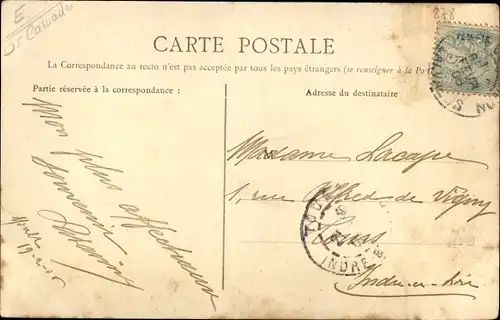 E
CARTE POSTALE
La Correspondance au recto n'est pas acceptée par tous les pays étrangers (se renseigner à la
Partie réservée à la correspondance :
Adresse du destinataire
Mon plus affectueux
souvenir
Madame Lacape
1, rue Alfred de Vigny
Tours
Indre-et-Loire
INDRE